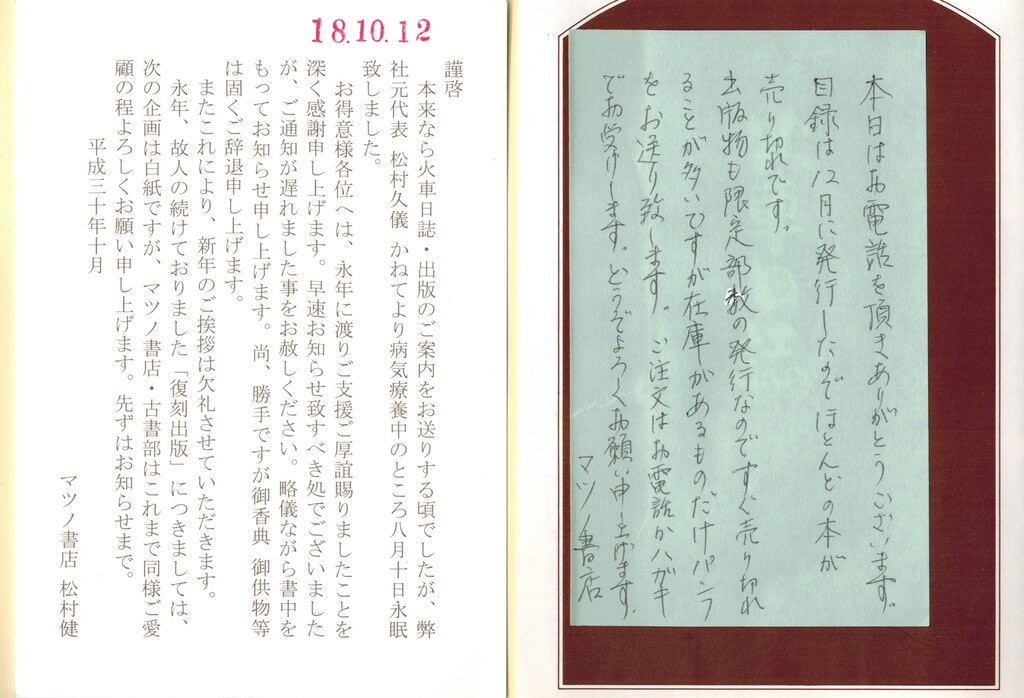 18.10.12
謹啓
本来なら火車日誌・出版のご案内をお送りする頃でしたが、弊
社元代表 松村久儀 かねてより病気療養中のところ八月十日永眠
致しました。
お得意様各位へは、永年に渡りご支援ご厚誼賜りましたことを
深く感謝申し上げます。早速お知らせ致すべき処でございました
が、ご通知が遅れました事をお赦しください。略儀ながら書中を
もってお知らせ申し上げます。尚、勝手ですが御香典、御供物等
は固くご辞退申し上げます。
またこれにより、新年のご挨拶は欠礼させていただきます。
永年、故人の続けておりました「復刻出版」につきましては、
次の企画は白紙ですが、マツノ書店・古書部はこれまで同様ご愛
顧の程よろしくお願い申し上げます。先ずはお知らせまで。
平成三十年十月
マツノ書店 松村健
本日はお電話を頂きありがとうございます。
目録は12月に発行したのでほとんどの本が
売り切れです。
出版物も限定部数の発行なのですぐ売り切れ
ることが多いですが在庫があるものだけパンフ
をお送り致します。ご注文はお電話かハガキ
でお受けします。どうぞよろしくお願い申し上げます。
マツノ書店